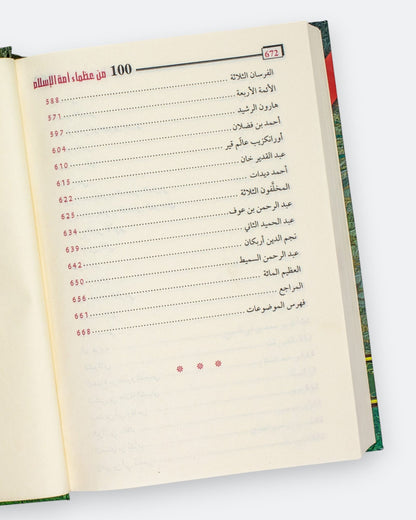 672 100 من عظماء أمة الإسلام
الفرسان الثلاثة 588
الأئمة الأربعة 571
هارون الرشيد 597
أحمد بن فضلان 604
أورانكزيب عالَم قير 610
عبد القدير خان 615
أحمد ديدات 622
المخلَّفون الثلاثة 625
عبد الرحمن بن عوف 634
عبد الحميد الثاني 639
نجم الدين أربكان 642
عبد الرحمن السميط 650
العظيم المائة 656
المراجع 661
فهرس الموضوعات 668